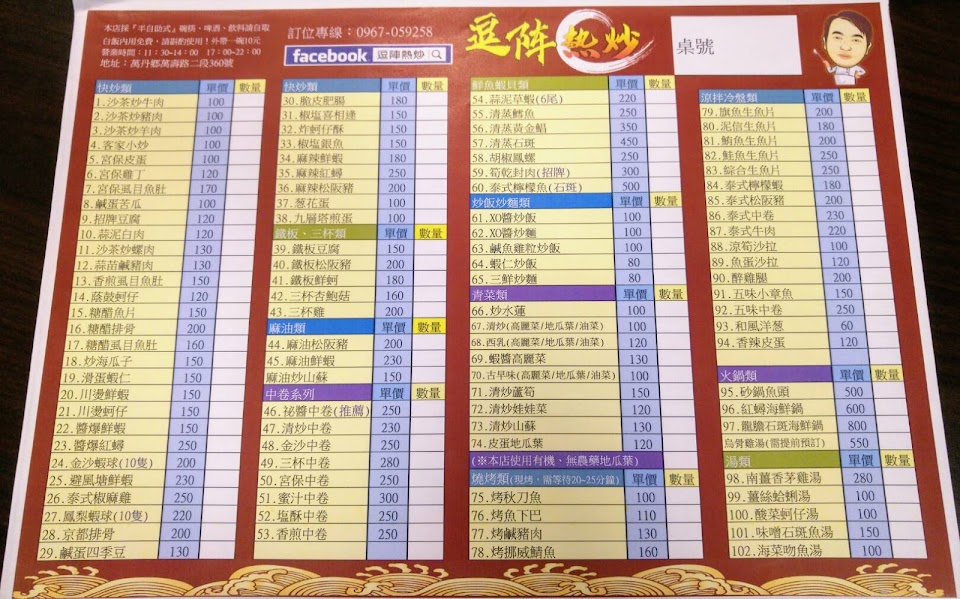 本店採『半自助式』碗筷、啤酒、飲料請自取
白飯內用免費，請斟酌使用！外帶一碗10元
營業時間：11：30-14：00 17：00-22：00
地址：萬丹鄉萬壽路二段360號
訂位專線：0967-059258
facebook 逗陣熱炒
逗陣熱炒
桌號
快炒類 單價 數量
1.沙茶炒牛肉 100
2.沙茶炒豬肉 100
3.沙茶炒羊肉 100
4.客家小炒 100
5.宮保皮蛋 100
6.宮保雞丁 120
7.宮保虱目魚肚 170
8.鹹蛋苦瓜 100
9.招牌豆腐 120
10.蒜泥白肉 120
11.沙茶炒螺肉 130
12.蒜苗鹹豬肉 130
13.香煎虱目魚肚 150
14.蔭鼓蚵仔 120
15.糖醋魚片 150
16.糖醋排骨 200
17.糖醋虱目魚肚 160
18.炒海瓜子 150
19.滑蛋蝦仁 150
20.川燙鮮蝦 150
21.川燙蚵仔 150
22.醬爆鮮蝦 150
23.醬爆紅蟳 250
24.金沙蝦球(10隻) 200
25.避風塘鮮蝦 230
26.泰式椒麻雞 250
27.鳳梨蝦球(10隻) 220
28.京都排骨 200
29.鹹蛋四季豆 130
快炒類 單價 數量
30.脆皮肥腸 180
31.椒塩喜相逢 150
32.炸蚵仔酥 150
33.椒塩銀魚 150
34.麻辣鮮蝦 180
35.麻辣紅蟳 250
36.麻辣松阪豬 200
37.葱花蛋 100
38.九層塔煎蛋 100
鐵板、三杯類 單價 數量
39.鐵板豆腐 150
40.鐵板松阪豬 200
41.鐵板鮮蚵 180
42.三杯杏鮑菇 160
43.三杯雞 200
麻油類 單價 數量
44.麻油松阪豬 200
45.麻油鮮蝦 230
麻油炒山蘇 150
中卷系列 單價 數量
46.祕醬中卷(推薦) 250
47.清炒中卷 230
48.金沙中卷 250
49.三杯中卷 280
50.宮保中卷 250
51.蜜汁中卷 300
52.塩酥中卷 250
53.香煎中卷 250
鮮魚蝦貝類 單價 數量
54.蒜泥草蝦(6尾) 220
55.清蒸鱈魚 250
56.清蒸黃金鯧 350
57.清蒸石斑 450
58.胡椒鳳螺 250
59.筍乾封肉(招牌) 300
60.泰式檸檬魚(石斑) 500
炒飯炒麵類 單價 數量
61.XO醬炒飯 100
62.XO醬炒麵 100
63.鹹魚雞粒炒飯 100
64.蝦仁炒飯 80
65.三鮮炒麵 80
青菜類 單價 數量
66.炒水蓮 100
67.清炒(高麗菜/地瓜葉/油菜) 100
68.西乳(高麗菜/地瓜葉/油菜) 120
69.蝦醬高麗菜 130
70.古早味(高麗菜/地瓜葉/油菜) 100
71.清炒蘆筍 150
72.清炒娃娃菜 120
73.清炒山蘇 130
74.皮蛋地瓜葉 120
(※本店使用有機、無農藥地瓜葉)
燒烤類(現烤，需等待20~25分鐘) 單價 數量
75.烤秋刀魚 100
76.烤魚下巴 110
77.烤鹹豬肉 130
78.烤挪威鯖魚 160
涼拌冷盤類 單價 數量
79.旗魚生魚片 200
80.泥信生魚片 180
81.鮪魚生魚片 200
82.鮭魚生魚片 250
83.綜合生魚片 250
84.泰式檸檬蝦 180
85.泰式松阪豬 200
86.泰式中卷 230
87.泰式牛肉 220
88.涼筍沙拉 100
89.魚蛋沙拉 120
90.醉雞腿 200
91.五味小章魚 150
92.五味中卷 250
93.和風洋葱 60
94.香辣皮蛋 120
火鍋類 單價 數量
95.砂鍋魚頭 500
96.紅蟳海鮮鍋 600
97.龍膽石斑海鮮鍋 800
烏骨雞湯(需提前預訂) 550
湯類 單價 數量
98.南薑香茅雞湯 280
99.薑絲蛤蜊湯 100
100.酸菜蚵仔湯 100
101.味噌石斑魚湯 150
102.海菜吻魚湯 100